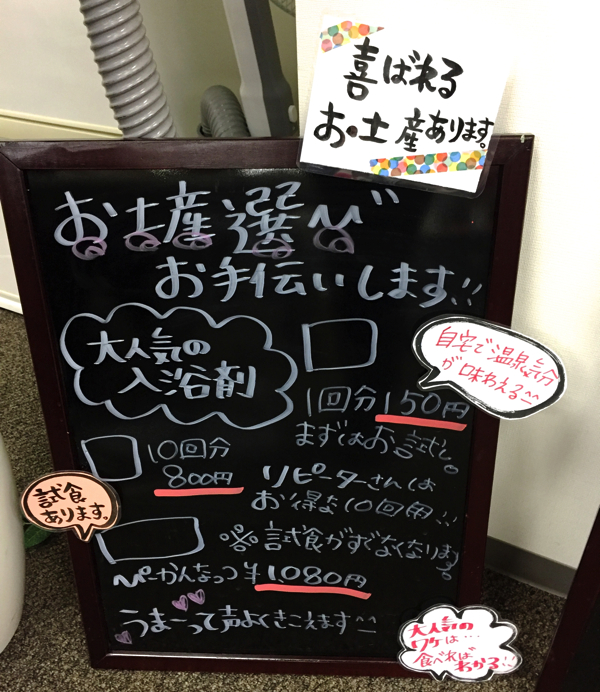 喜ばれる
お土産あります。
お土産選び
お手伝いします!!
大人気の
入浴剤
自宅で温泉気分
が味わえる^^
1回分150円
まずはお試し。
10回分
800円
リピーターさんは
お得な10回用!!
試食
あります。
※試食がすぐなくなります。
ぴーかんなっつ¥1080円
うまーって声よくきこえます^^
大人気の
ワケは…
食べれば
わかる!!